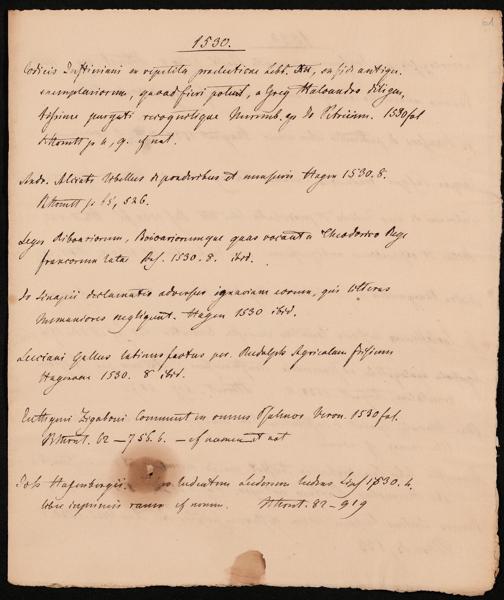 1530.
Codicis Justiniani ex repetita praelectione Libri XII, ex fide antiqu.
exemplariorum, quoad fieri potuit, a Greg Haloandro diligen,
tissime purgati recognitique Nurimb. ap Jo Petrium. 1530 fol
p 4, 9. cf not.
Andr. Alciati libellus de ponderibus et mensuris Hagen 1530. 8.
p 65, 526.
Leges Ribuariorum, Boioariorumque quas vocant a Theodorico Rege
francorum latae Bas. 1530. 8. ibid.
Jo Sinapii declamatio adversus ignaviam eorum, qui litteras
humaniores negligunt. Hagen 1530 ibid.
Luciani Gallus latinus factus per. Rudolph Agricolam frisium
Hagenoae 1530. 8 ibid.
Euthymii Zigaboni Comment in omnes Psalmos Veron. 1530 fol.
62 — 756. 6. — cf numm et not
Joh Hasenbergii Ludentem Ludorum ludens Lips 1530. 4.
libri inprimis rarus cf numm. 82 — 919